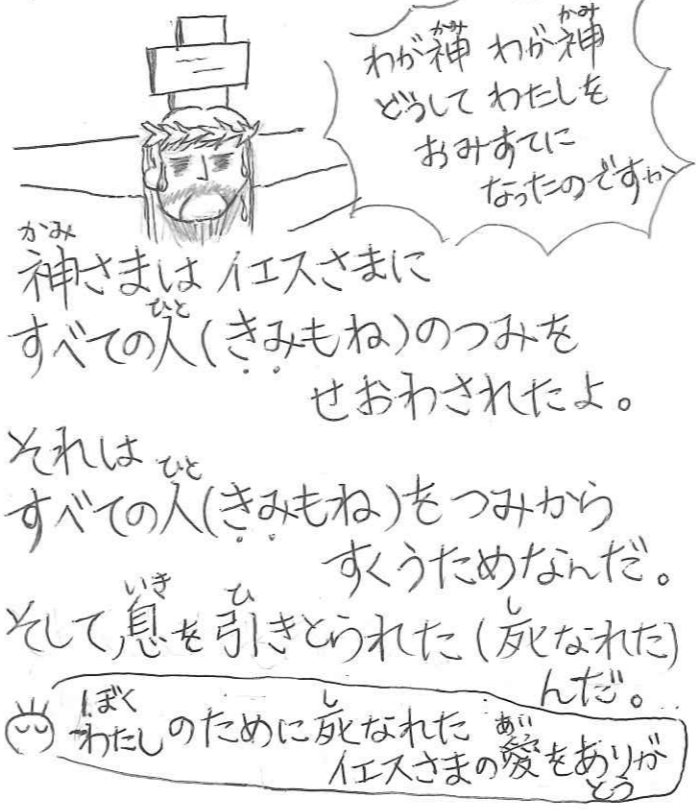 わが神 わが神
どうして わたしを
おみすてに
なったのですか
神さまは イエスさまに
すべての人(きみもね)のつみを
せおわされたよ。
それは
すべての人(きみもね)をつみから
すくうためなんだ。
そして、息を引きとられた(死なれた)
んだ。
ぼく
わたしのために死なれた
イエスさまの愛をありが
とう